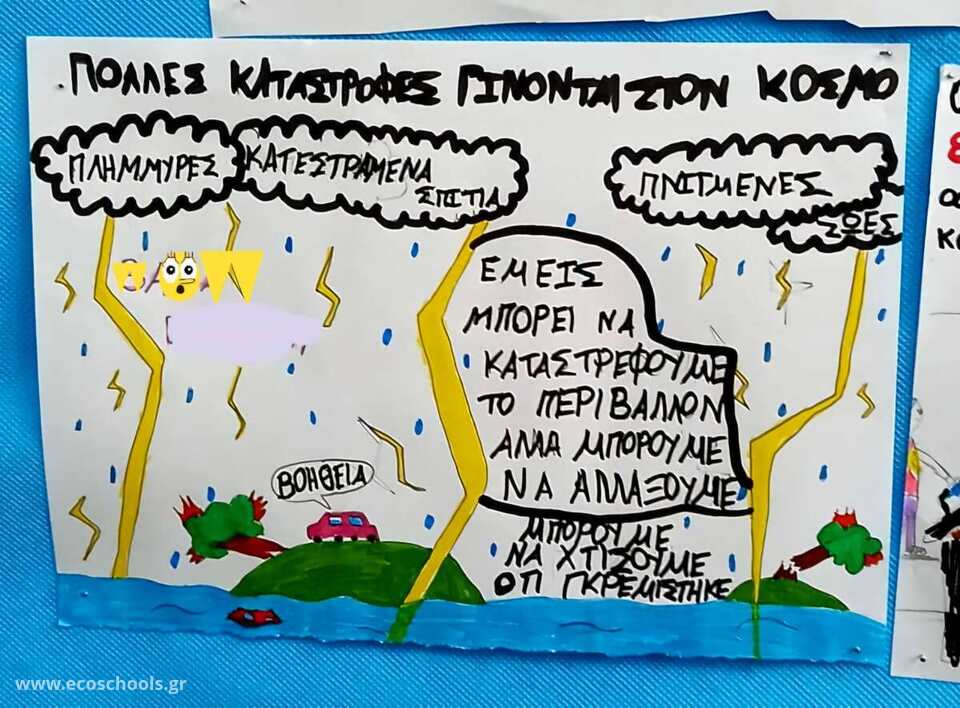 ΠΟΛΛΕΣ ΚΑΤΑΣΤΡΟΦΕΣ ΓΙΝΟΝΤΑΙ ΣΤΟΝ ΚΟΣΜΟ
ΠΛΗΜΜΥΡΕΣ
ΚΑΤΕΣΤΡΑΜΕΝΑ
ΣΠΙΤΙΑ
ΠΝΙΓΜΕΝΕΣ
ΖΩΕΣ
WOW
ΕΜΕΙΣ
ΜΠΟΡΕΙ ΝΑ
ΚΑΤΑΣΤΡΕΦΟΥΜΕ
ΤΟ ΠΕΡΙΒΑΛΛΟΝ
ΑΛΛΑ ΜΠΟΡΟΥΜΕ
ΝΑ ΑΛΛΑΞΟΥΜΕ
ΜΠΟΡΟΥΜΕ
ΝΑ ΧΤΙΣΟΥΜΕ
ΟΤΙ ΓΚΡΕΜΙΣΤΗΚΕ
ΒΟΗΘΕΙΑ
www.ecoschools.gr